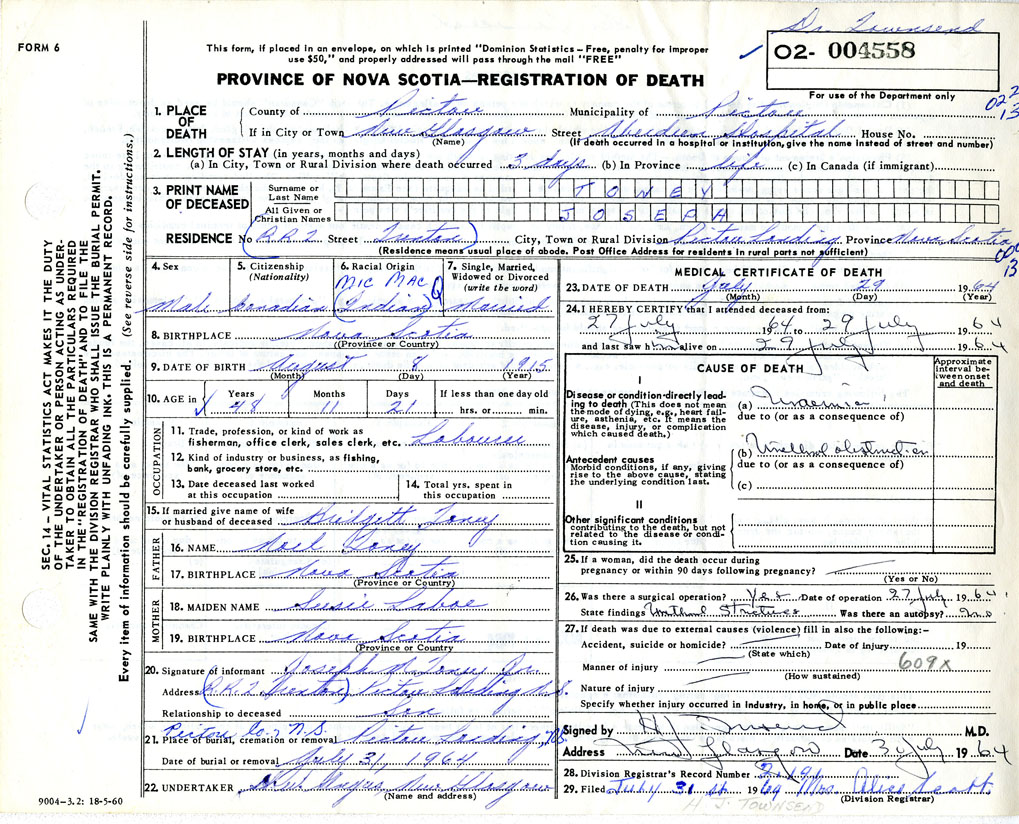 FORM 6
Dr. Townsend
This form, if placed in an envelope, on which is printed "Dominion Statistics – Free, penalty for improper
use $50," and properly addressed will pass through the mail "FREE"
02- 004558
PROVINCE OF NOVA SCOTIA—REGISTRATION OF DEATH
For use of the Department only
022
13
1. PLACE OF DEATH
County of Pictou Municipality of Pictou
If in City or Town New Glasgow Street Aberdeen Hospital House No.
(Name) (If death occurred in a hospital or institution, give the name instead of street and number)
2. LENGTH OF STAY (in years, months and days)
(a) In City, Town or Rural Division where death occurred 3 days (b) In Province life (c) In Canada (if immigrant)
3. PRINT NAME OF DECEASED
Surname or Last Name TONEY
All Given or Christian Names JOSEPH
RESIDENCE No (R.R.2 Street Trenton) City, Town or Rural Division Pictou Landing Province Nova Scotia
(Residence means usual place of abode. Post Office Address for residents in rural parts not sufficient)
000
13
4. Sex Male
5. Citizenship (Nationality) Canadian
6. Racial Origin MIC MAC (Indian)
7. Single, Married, Widowed or Divorced (write the word) Married
8. BIRTHPLACE Nova Scotia
(Province or Country)
9. DATE OF BIRTH August 8 1915
(Month) (Day) (Year)
10. AGE in Years 48 Months 11 Days 21 If less than one day old hrs. or min.
OCCUPATION
11. Trade, profession, or kind of work as
fisherman, office clerk, sales clerk, etc. Labourer
12. Kind of industry or business, as fishing,
bank, grocery store, etc.
13. Date deceased last worked
at this occupation
14. Total yrs. spent in
this occupation
15. If married give name of wife
or husband of deceased Bridgett Toney
FATHER
16. NAME Noel Toney
17. BIRTHPLACE Nova Scotia
(Province or Country)
MOTHER
18. MAIDEN NAME Susie Laboe
19. BIRTHPLACE Nova Scotia
(Province or Country)
20. Signature of informant Joseph N. Toney Jr.
Address (R.R.2 Trenton) Pictou Landing N.S.
Relationship to deceased Son
Pictou Co., N.S.
21. Place of burial, cremation or removal Pictou Landing, N.S.
Date of burial or removal July 31, 1964
22. UNDERTAKER New Glasgow
(Name and address)
MEDICAL CERTIFICATE OF DEATH
23. DATE OF DEATH July 29 1964
(Month) (Day) (Year)
24. I HEREBY CERTIFY that I attended deceased from:
27 July 1964 to 29 July 1964
and last saw h alive on 29 July 1964
CAUSE OF DEATH
Approximate interval between onset and death
I
Disease or condition directly leading to death (This does not mean
the mode of dying, e.g., heart failure, asthenia, etc. It means the
disease, injury, or complication
which caused death.)
(a) Uraemia
due to (or as a consequence of)
Antecedent causes
Morbid conditions, if any, giving
rise to the above cause, stating
the underlying condition last.
(b) Urethral obstruction
due to (or as a consequence of)
(c)
II
Other significant conditions
contributing to the death, but not
related to the disease or condition causing it.
25. If a woman, did the death occur during
pregnancy or within 90 days following pregnancy?
(Yes or No)
26. Was there a surgical operation? Yes Date of operation 27 July 1964
State findings Urethral Stricture Was there an autopsy? no
27. If death was due to external causes (violence) fill in also the following:–
Accident, suicide or homicide? Date of injury 19
(State which)
609X
Manner of injury
(How sustained)
Nature of injury
Specify whether injury occurred in Industry, in home, or in public place
Signed by H J Townsend M.D.
Address New Glasgow Date 31 July 1964
28. Division Registrar's Record Number 2191
29. Filed July 31 st 1964 Mrs. Alice Scott
(Division Registrar)
H J TOWNSEND
SEC. 14 – VITAL STATISTICS ACT MAKES IT THE DUTY
OF THE UNDERTAKER OR PERSON ACTING AS UNDER-
TAKER TO OBTAIN ALL THE PARTICULARS REQUIRED
IN THE "REGISTRATION OF DEATH" AND TO FILE THE
SAME WITH THE DIVISION REGISTRAR WHO SHALL ISSUE THE BURIAL PERMIT.
WRITE PLAINLY WITH UNFADING INK. THIS IS A PERMANENT RECORD.
Every item of information should be carefully supplied. (See reverse side for instructions.)
9004–3.2: 18-5-60